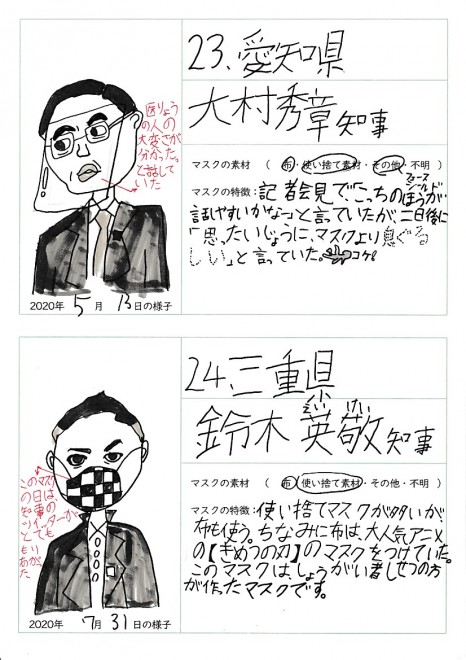 23、愛知県
大村秀章知事
マスクの素材 （布・使い捨て素材・その他・不明）
フェースシールド
マスクの特徴：記者会見で「こっちのほうが
話しやすいかな〜」と言っていたが、二日後に
「思ったいじょうに、マスクより息ぐる
しい」と言っていた。コケ!
医りょう
の人の
大変さが
分かった。
と話して
いた
2020年 5月 13日の様子
24、三重県
鈴木 英敬知事
えい けい
マスクの素材 （布・使い捨て素材・その他・不明）
マスクの特徴：使い捨てマスクが多いが、
布も使う。ちなみに布は、大人気アニメ
の【きめつの刃】のマスクをつけていた。
このマスクは、しょうがい者しせつの方
が作ったマスクです。
このマスク
の日は、
知事の
ツイッターが
とても
もり
あがった
2020年 7月 31日の様子